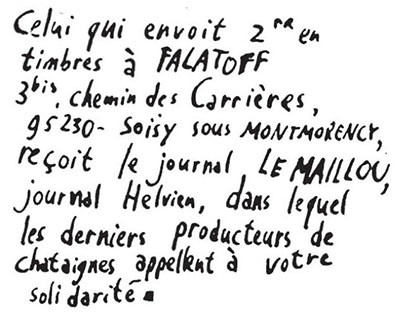 Celui qui envoit 2 ᶠʳˢ en
timbres à FALATOFF
3bis, chemin des Carrières,
95230- Soisy sous MONTMORENCY,
reçoit le journal LE MAILLOU,
journal Helvien, dans lequel
les derniers producteurs de
chataignes appellent à votre
solidarité.